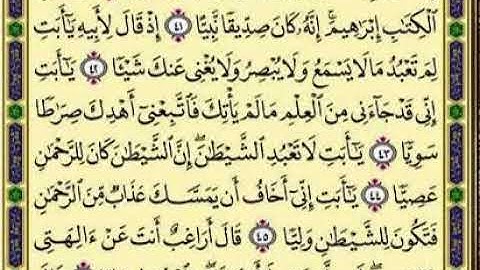 ٱلۡكِتَٰبِ إِبۡرَٰهِيمَۚ إِنَّهُۥ كَانَ صِدِّيقٗا نَّبِيًّا ٤١ إِذۡ قَالَ لِأَبِيهِ يَٰٓأَبَتِ
لِمَ تَعۡبُدُ مَا لَا يَسۡمَعُ وَلَا يُبۡصِرُ وَلَا يُغۡنِي عَنكَ شَيۡـٔٗا ٤٢ يَٰٓأَبَتِ
إِنِّي قَدۡ جَآءَنِي مِنَ ٱلۡعِلۡمِ مَا لَمۡ يَأۡتِكَ فَٱتَّبِعۡنِيٓ أَهۡدِكَ صِرَٰطٗا
سَوِيّٗا ٤٣ يَٰٓأَبَتِ لَا تَعۡبُدِ ٱلشَّيۡطَٰنَۖ إِنَّ ٱلشَّيۡطَٰنَ كَانَ لِلرَّحۡمَٰنِ
عَصِيّٗا ٤٤ يَٰٓأَبَتِ إِنِّيٓ أَخَافُ أَن يَمَسَّكَ عَذَابٞ مِّنَ ٱلرَّحۡمَٰنِ
فَتَكُونَ لِلشَّيۡطَٰنِ وَلِيّٗا ٤٥ قَالَ أَرَاغِبٌ أَنتَ عَنۡ ءَالِهَتِي